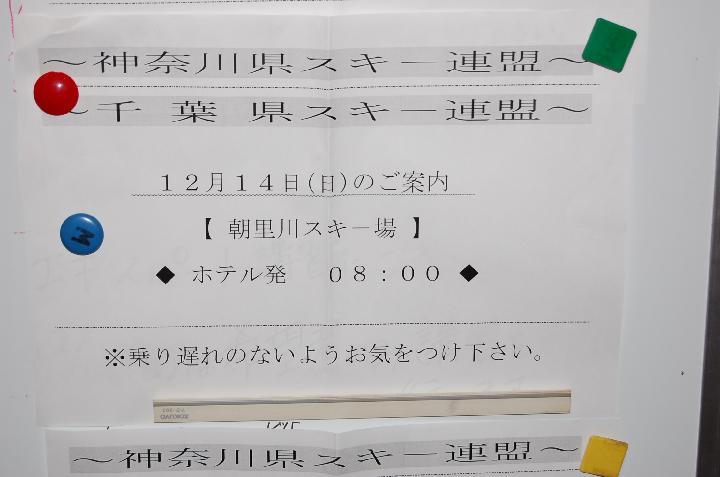 ～神奈川県スキー連盟～
～千葉県スキー連盟～
１２月１４日(日)のご案内
【 朝里川スキー場 】
◆ ホテル発　０８：００ ◆
※乗り遅れのないようお気をつけ下さい。
KOKUYO
～神奈川県スキー連盟～